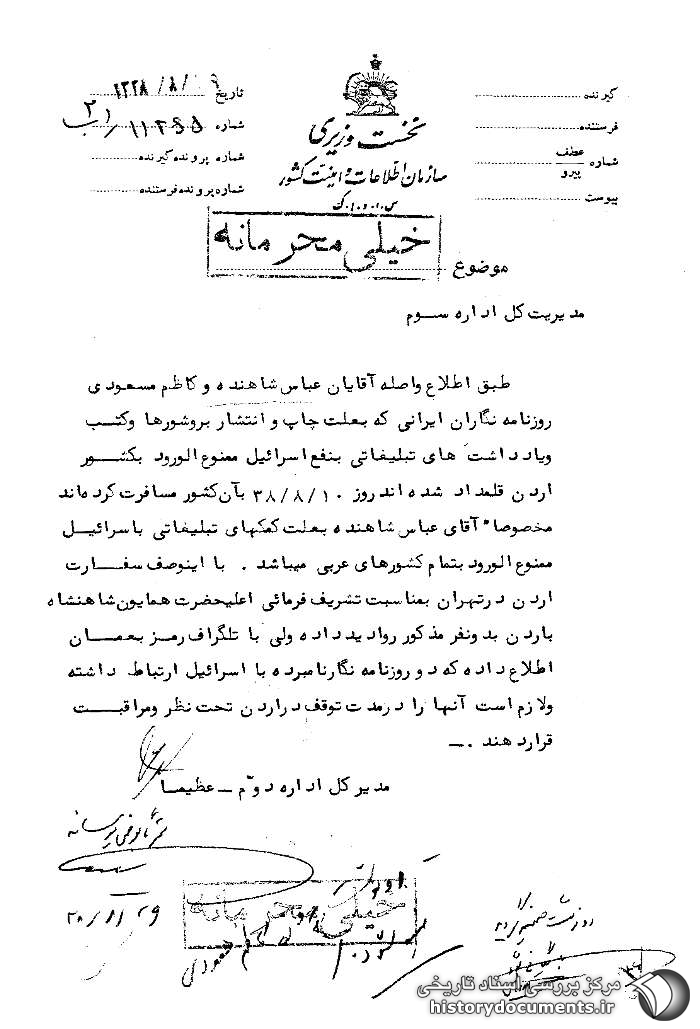 گیرنده
فرستنده
شماره عطف پیرو
پیوست
نخست وزیری
سازمان اطلاعات و امنیت کشور
س.ا.و.ا.ک
تاریخ ۹/۸/۱۳۳۸
شماره
شماره پرونده گیرنده
شماره پرونده فرستنده
خیلی محرمانه
موضوع
مدیریت کل اداره سوم
طبق اطلاع واصله آقایان عباس شاهنده و کاظم مسعودی
روزنامه نگاران ایرانی که بعلت چاپ و انتشار بروشورها و کتب
و یادداشت های تبلیغاتی بنفع اسرائیل ممنوع الورود بکشور
اردن قلمداد شده اند روز ۳۸/۸/۱۰ بآن کشور مسافرت کرده اند
مخصوصا" آقای عباس شاهنده بعلت کمکهای تبلیغاتی باسرائیل
ممنوع الورود بتمام کشورهای عربی میباشد . با اینوصف سفارت
اردن در تهران بمناسبت تشریف فرمائی اعلیحضرت همایون شاهنشاه
باردن بدو نفر مذکور روادید داده ولی با تلگراف رمز بعمان
اطلاع داده که دو روزنامه نگار نامبرده با اسرائیل ارتباط داشته
و لازم است آنها را در مدت توقف در اردن تحت نظر و مراقبت
قرار دهند .ـ
مدیر کل اداره دوم ـ عظیما
خیلی محرمانه
مرکز بررسی اسناد تاریخی
historydocuments.ir